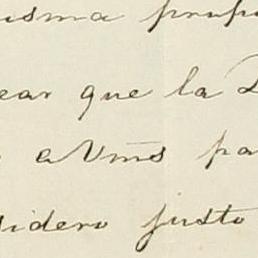 misma prop
ear que la D
a Vms pa
sidero justo